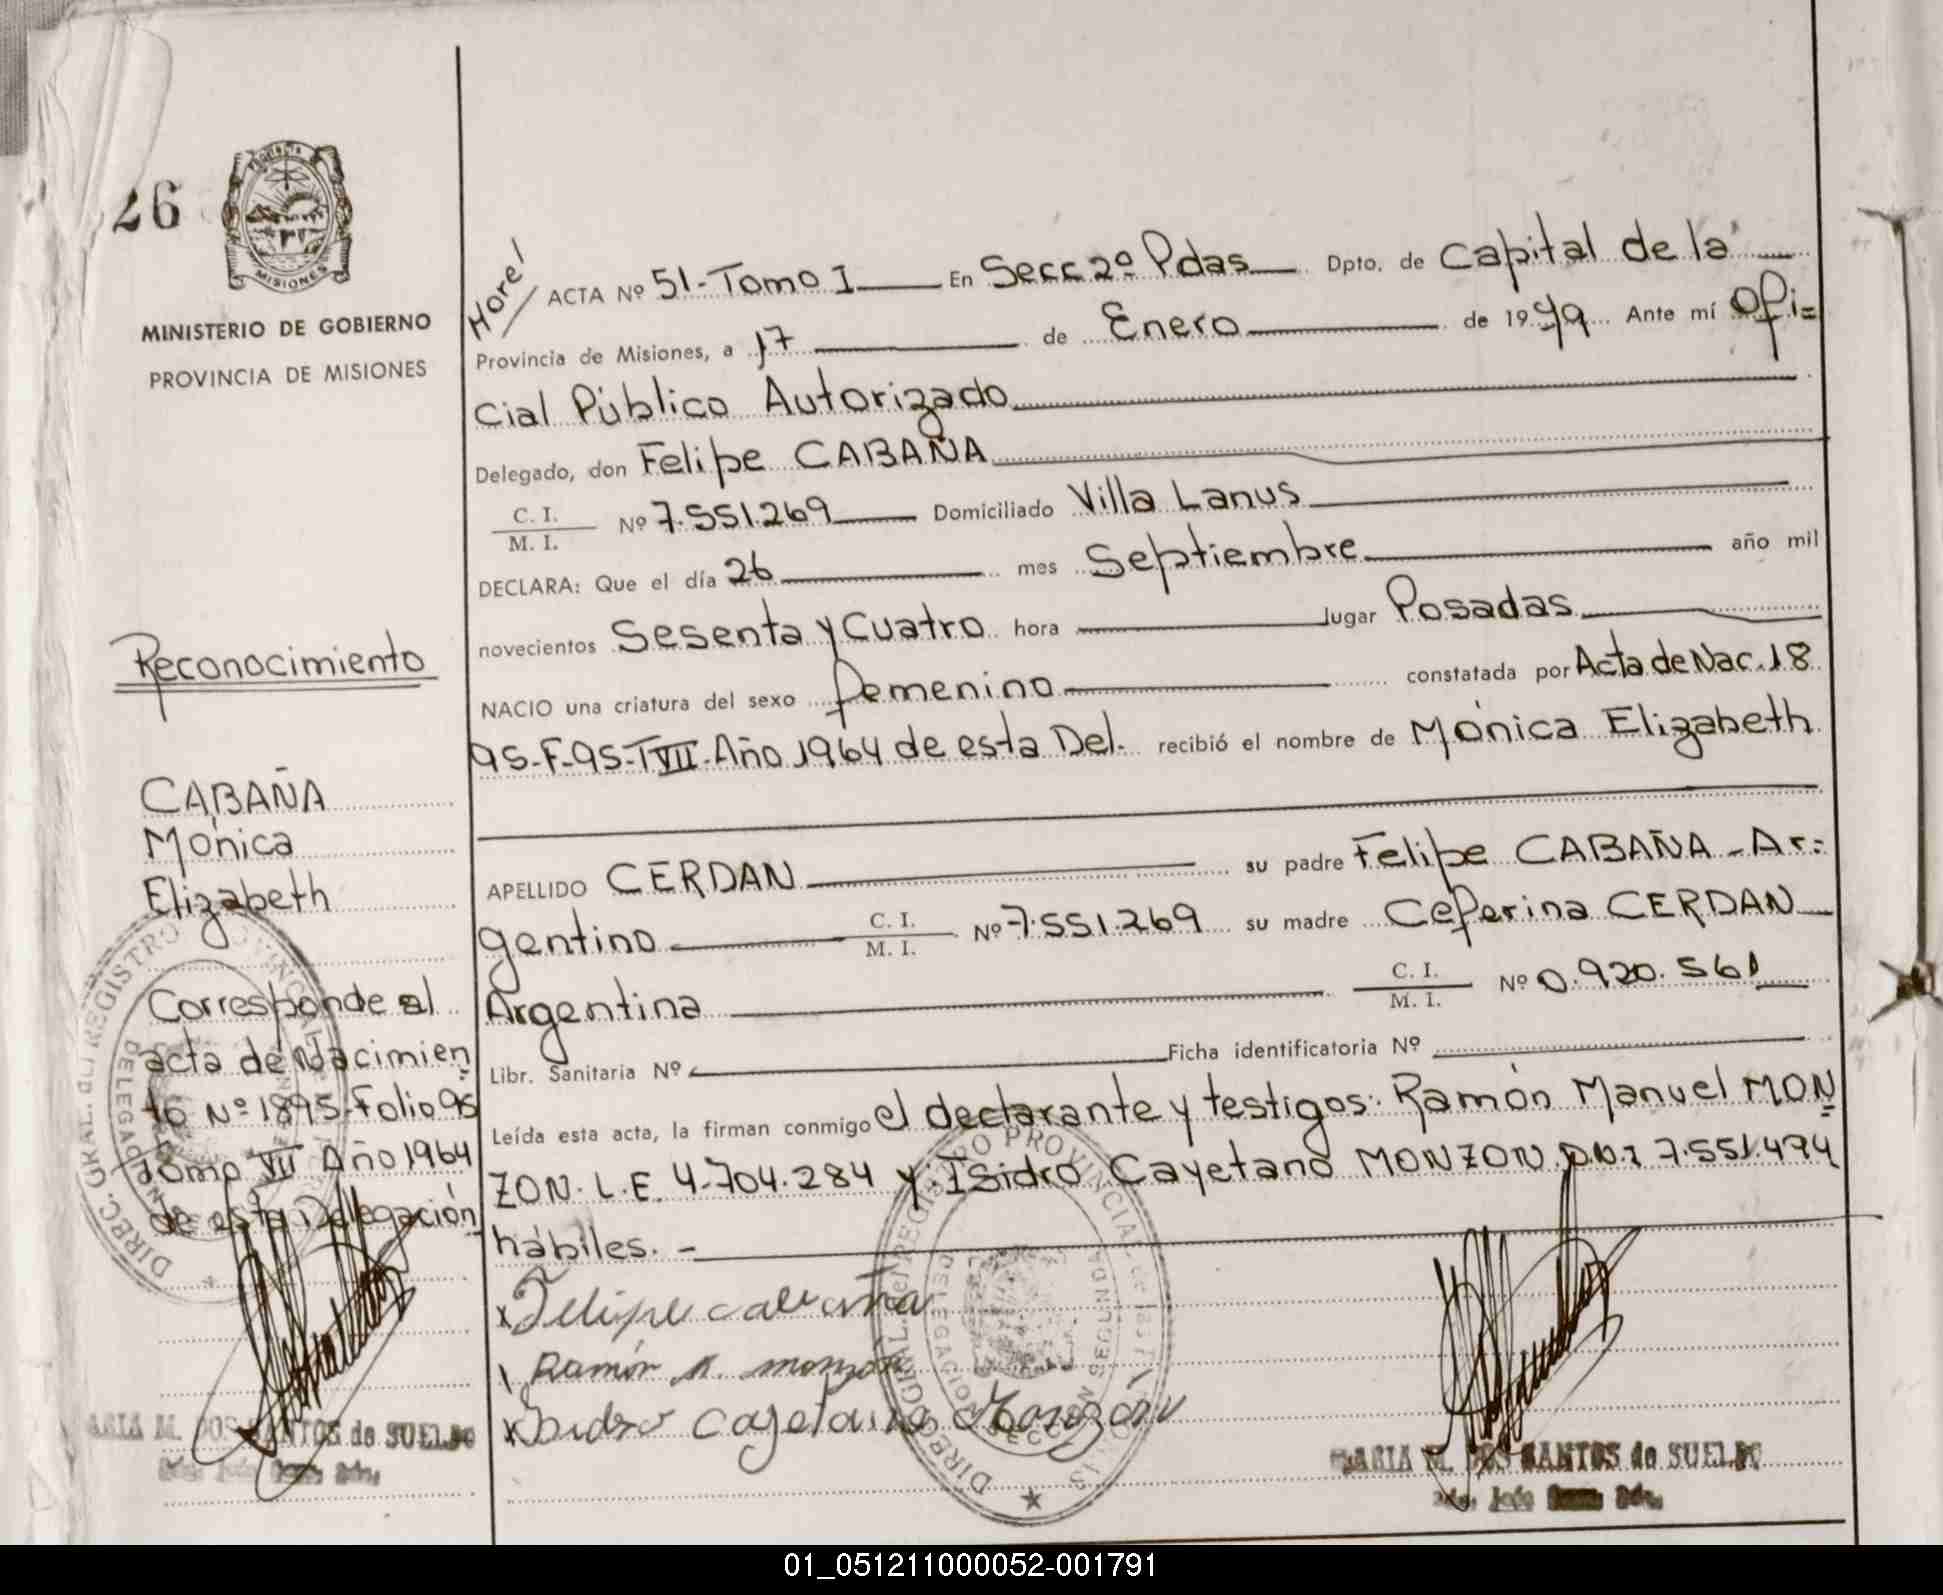 26
PROVINCIA
MISIONES
MINISTERIO DE GOBIERNO
PROVINCIA DE MISIONES
Reconocimiento
CABAÑA
Mónica
Elizabeth
Corresponde al
acta de Nacimien
to Nº 1895-Folio 95
Tomo VII Año 1964
de esta Delegación
DIREC. GRAL. del REGISTRO PROVINCIAL
MARIA M. DOS SANTOS de SUELDO
ACTA Nº 51-Tomo I En Secc 2º Pdas Dpto. de Capital de la
Provincia de Misiones, a 17 de Enero de 1979 Ante mí Ofi=
cial Público Autorizado
Delegado, don Felipe CABAÑA
C. I.
M. I. Nº 7.551.269 Domiciliado Villa Lanus
DECLARA: Que el día 26 mes Septiembre año mil
novecientos Sesenta y Cuatro hora lugar Posadas
NACIO una criatura del sexo femenino constatada por Acta de Nac. 18
95-F-95-TVII-Año 1964 de esta Del. recibió el nombre de Mónica Elizabeth
APELLIDO CERDAN su padre Felipe CABAÑA - Ar=
gentino C. I.
M. I. Nº 7.551.269 su madre Ceferina CERDAN
Argentina C. I.
M. I. Nº 0.920.561
Libr. Sanitaria Nº Ficha identificatoria Nº
Leída esta acta, la firman conmigo el declarante y testigos: Ramón Manuel MON
ZON. L.E. 4.704.284 y: Isidro Cayetano MONZON D.N.I 7.551.494
hábiles. -
x Felipe cabaña
Ramón M. monzon
x Isidro Cayetano Monzon
DIREC. GRAL. del REGISTRO PROVINCIAL de las PERSONAS
DELEGACION SECCION SEGUNDA
MARIA M. DOS SANTOS de SUELDO
01_051211000052-001791